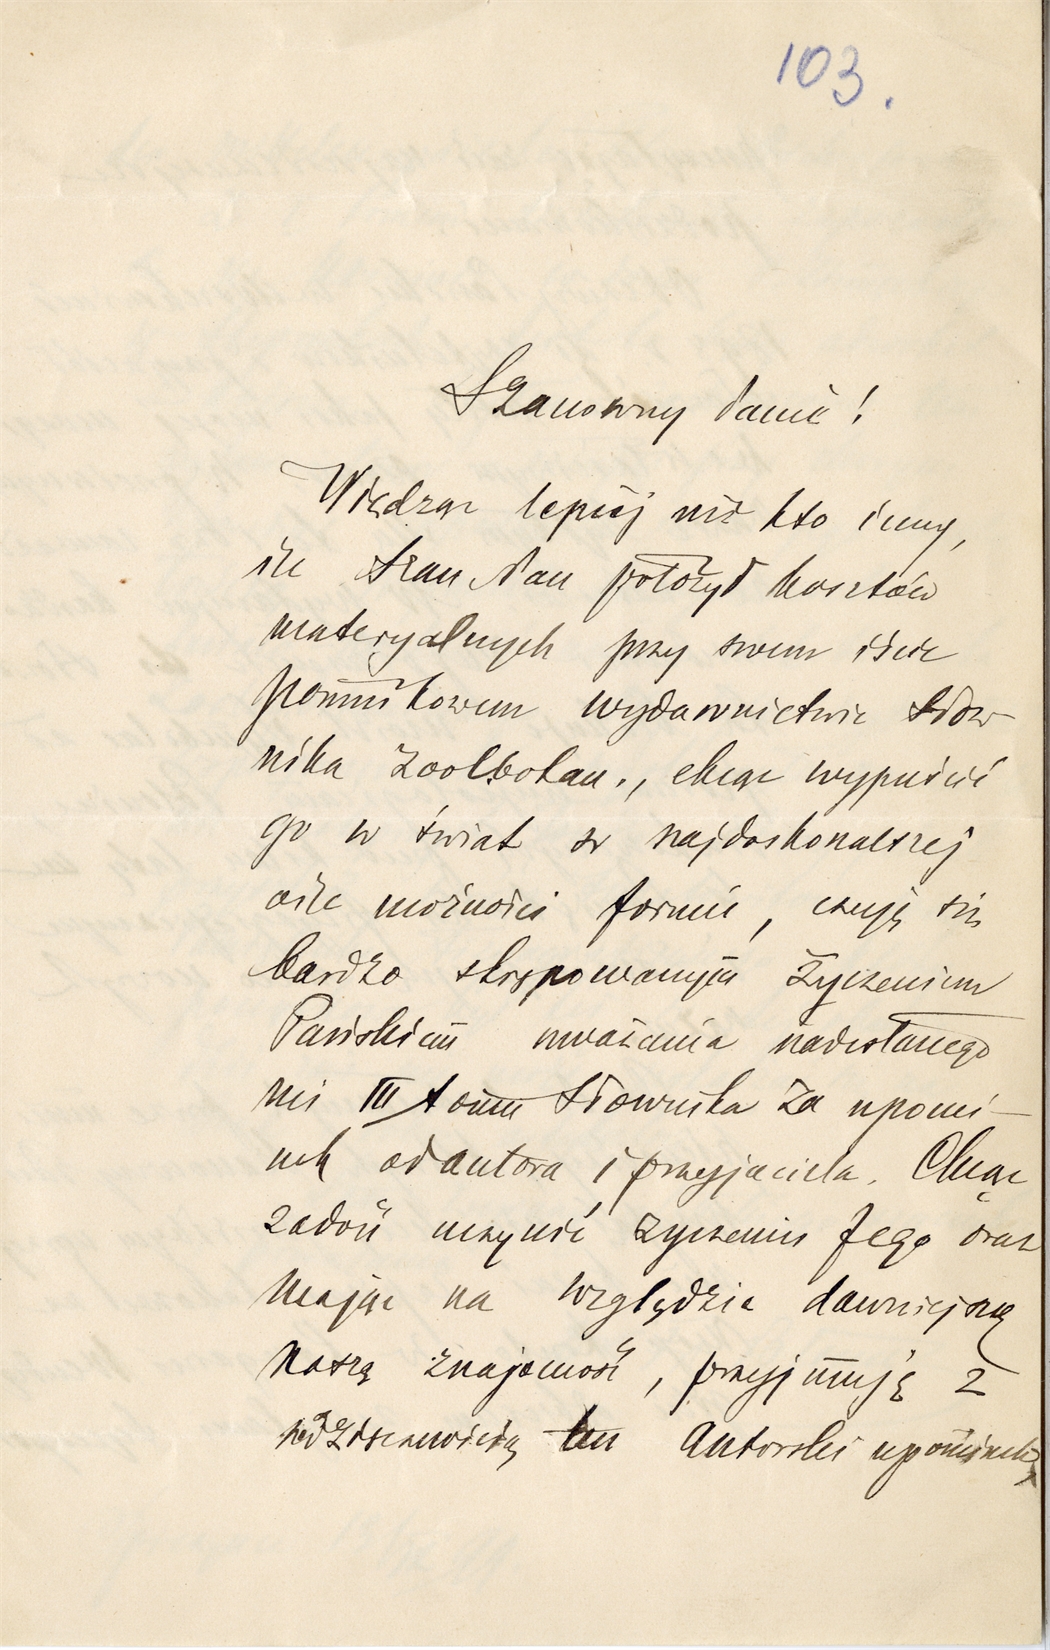 103.
Szanowny Panie!
Wiedząc lepiej niż kto inny,
ile Szan Pan położył kosztów
materyalnych przy swem iście
pomnikowem wydawnictwie Słow-
nika zoolbotan., chcąc wypuścić
go w świat w najdoskonalszej
o ile możności formie, czuję się
bardzo skrępowanym życzeniem
Pańskiem uważania nadesłanego
mi III tomu Słownika za upomi-
nek od autora i przyjaciela. Chcąc
zadość uczynić życzeniu Jego oraz
mając na względzie dawniejszą
naszą znajomość, przyjmuję z
wdzięcznością ten autorski upominek,